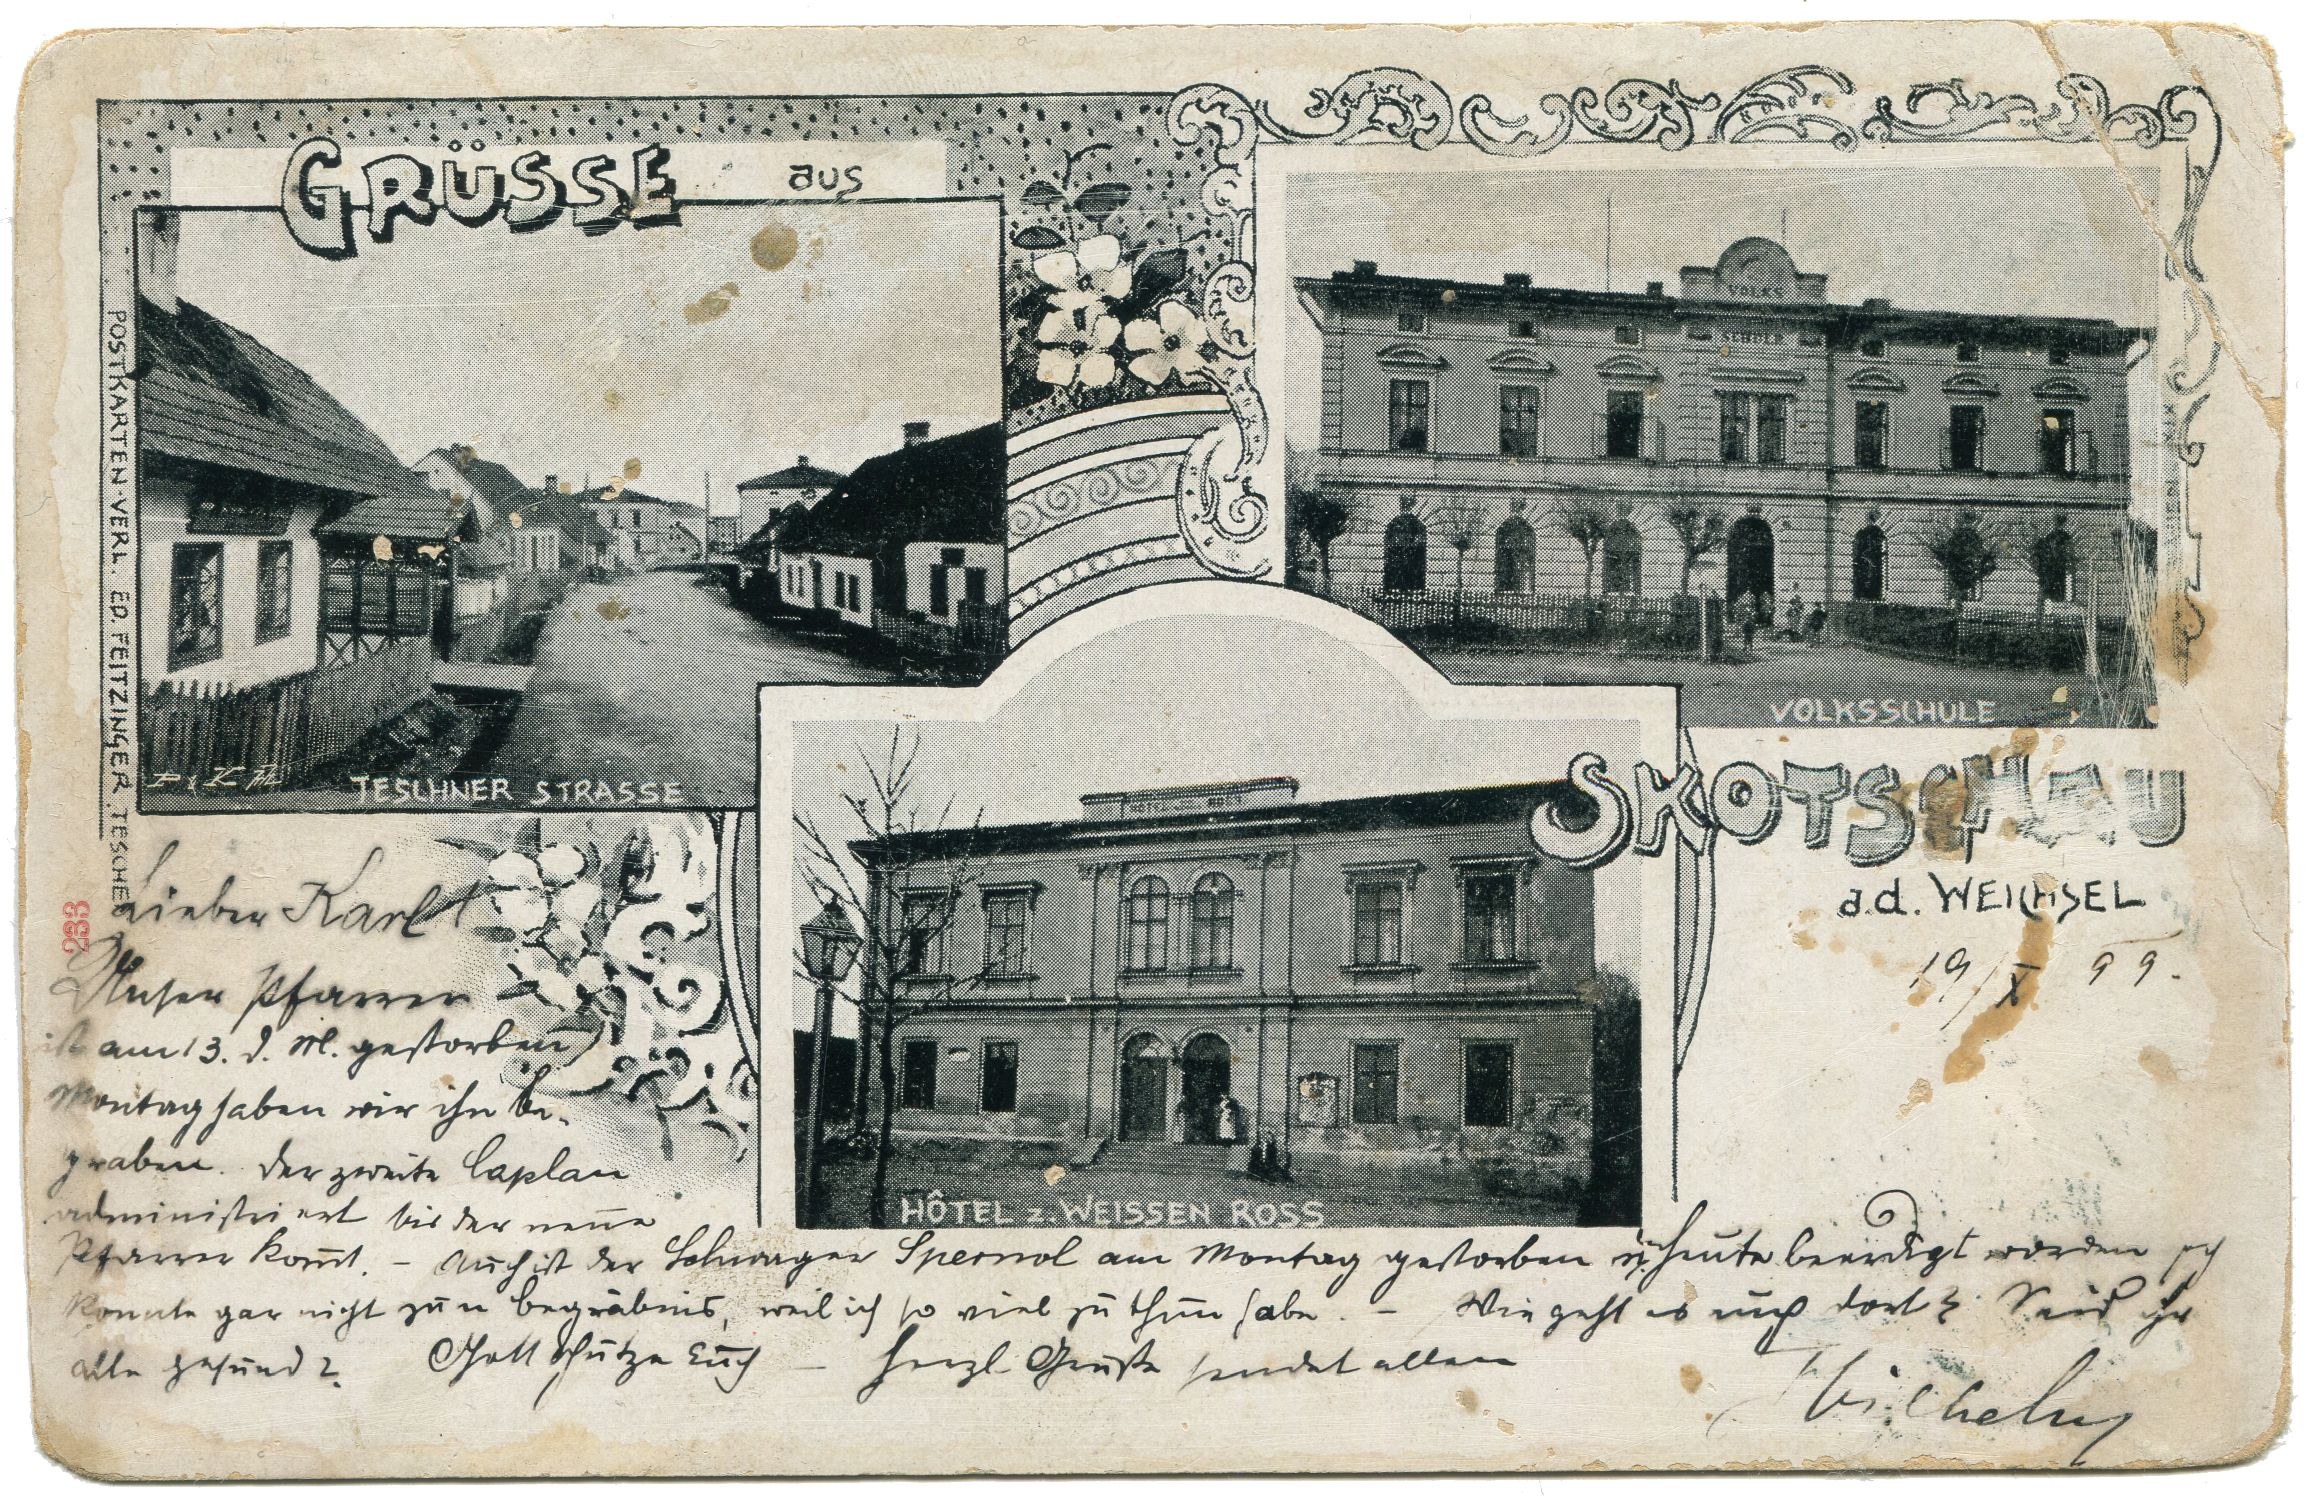 GRÜSSE aus
POSTKARTEN-VERL. ED. FEITZINGER, TESCHEN
TESCHNER STRASSE
VOLKS
SCHULE
VOLKSSCHULE
SKOTSCHAU
a.d. WEICHSEL
HÔTEL z. WEISSEN ROSS
233
19/X 99.
Lieber Karl!
Unser Pfarrer
ist am 13. d. M. gestorben
Montag haben wir ihn be-
graben. Der zweite Caplan
administriert bis der neue
Pfarrer kom̄t. – Auch ist der Schwager am Montag gestorben u. heute beerdigt worden ich
konnte gar nicht zum Begräbnis, weil ich so viel zu thun habe. – Wie geht es euch dort? Seid ihr
alle gesund? Gott schütze Euch – Herzl. Grüße sendet allen
Wilhelm